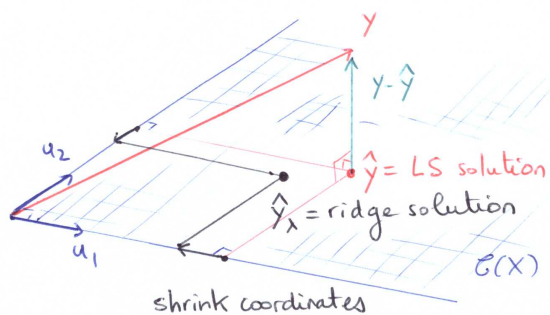 y
y - ŷ
u₂
ŷ = LS solution
ŷ_λ = ridge solution
u₁
C(X)
shrink coordinates